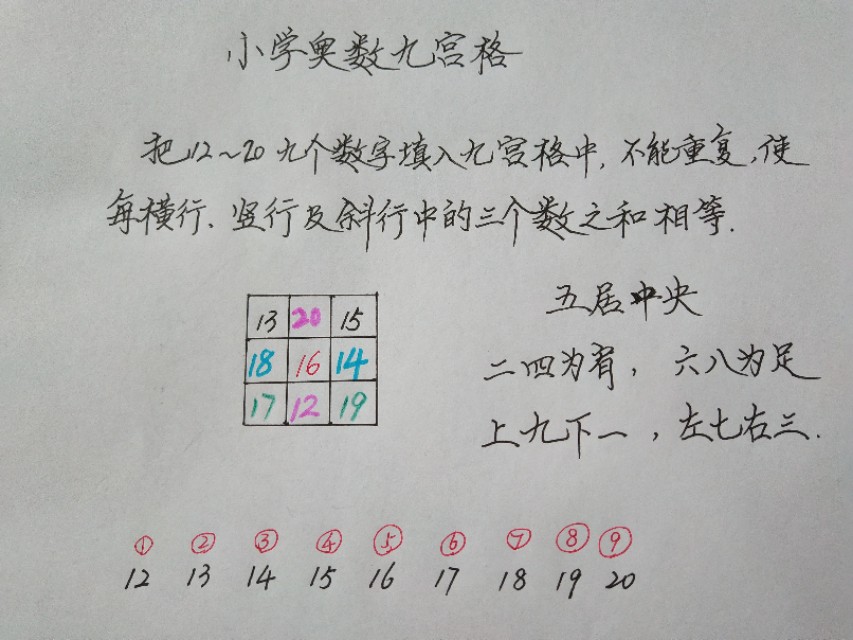 小学奥数九宫格
把12~20九个数字填入九宫格中,不能重复,使
每横行、竖行及斜行中的三个数之和相等.
13 20 15
18 16 14
17 12 19
五居中央
二四为肩,六八为足
上九下一,左七右三.
① ② ③ ④ ⑤ ⑥ ⑦ ⑧ ⑨
12 13 14 15 16 17 18 19 20